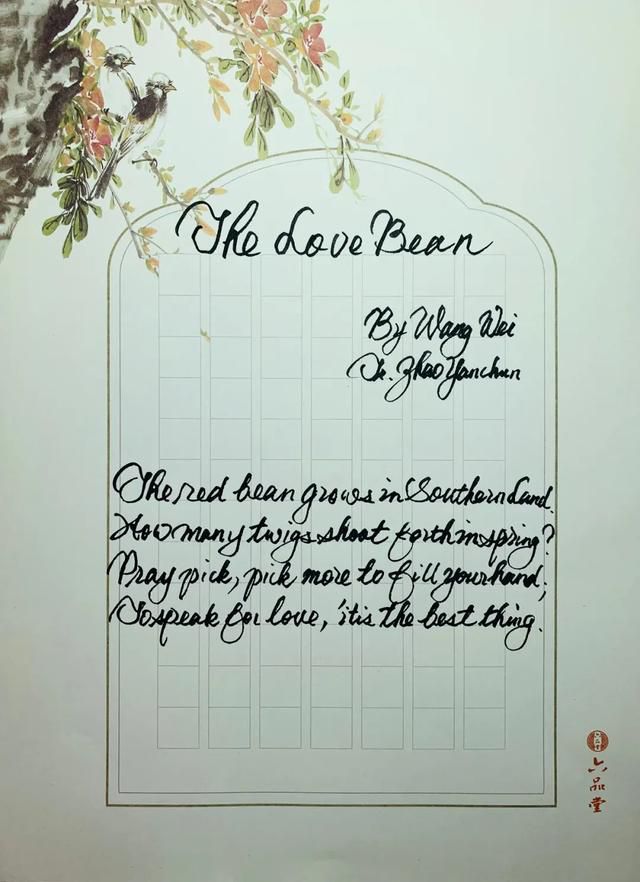 The Love Bean
By Wang Wei
Tr. Zhao Yanchun
The red bean grows in Southern Land.
How many twigs shoot forth in spring?
Pray pick, pick more to fill your hand;
To speak for love, 'tis the best thing.
六品堂